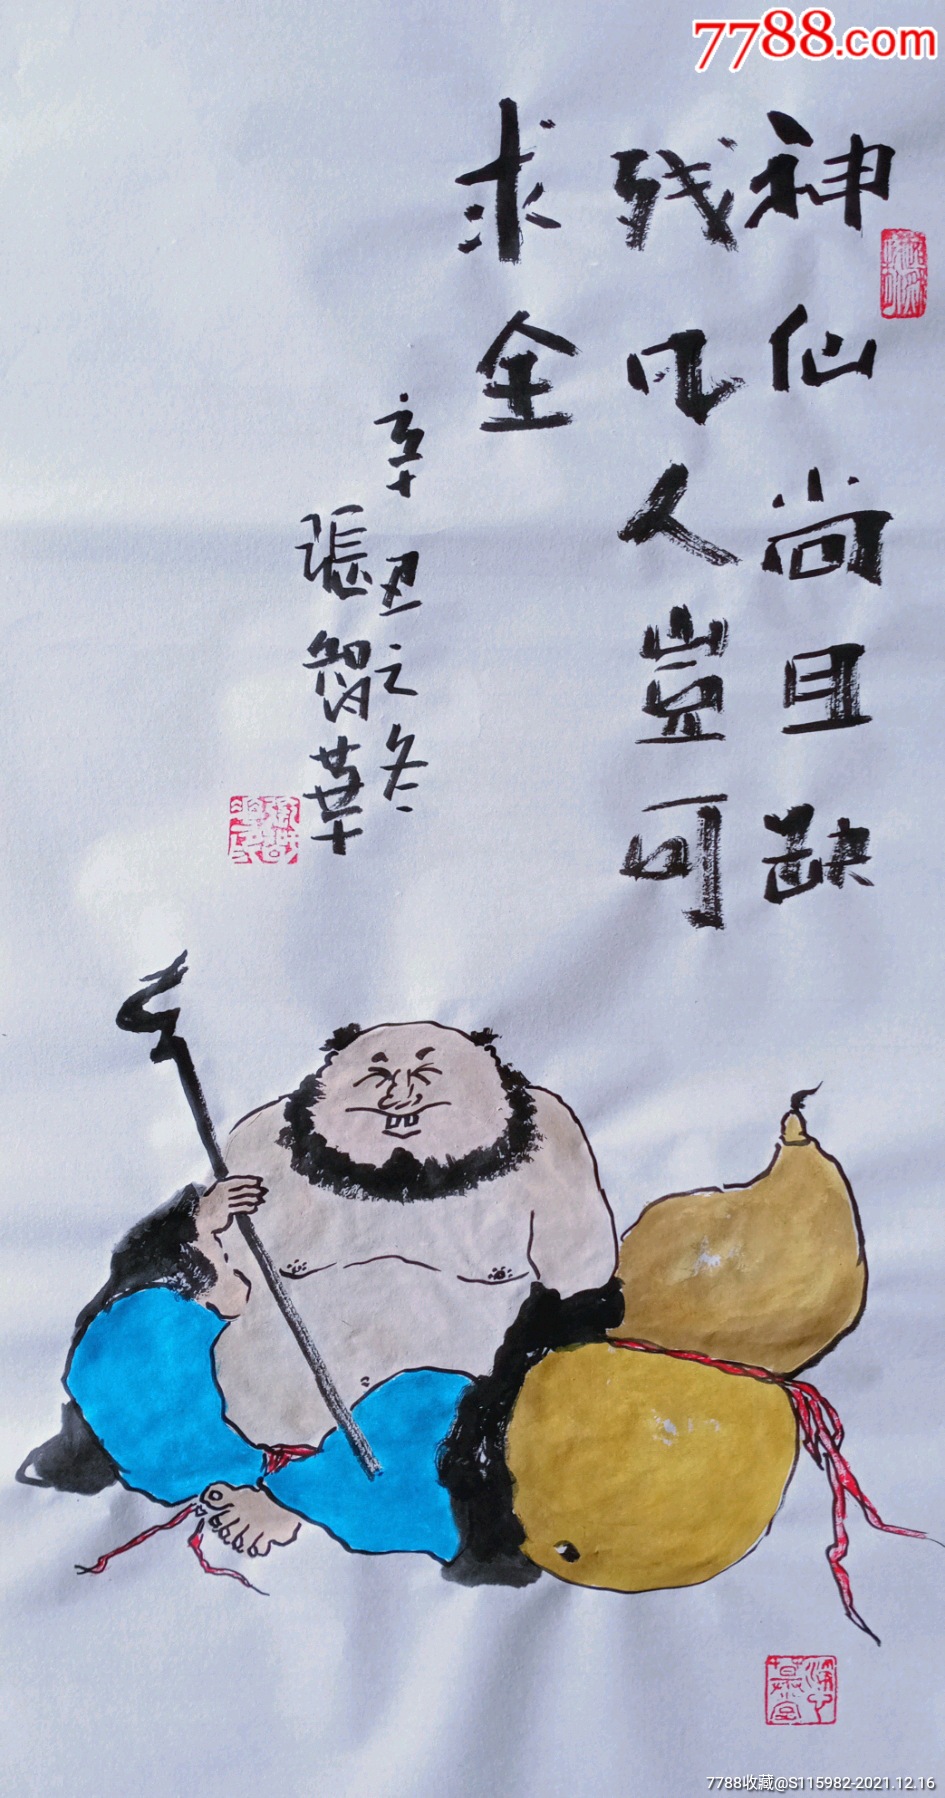 7788.com
神仙尚且缺
残凡人豈可
求全
辛丑之冬
張智華
7788收藏@S115982-2021.12.16